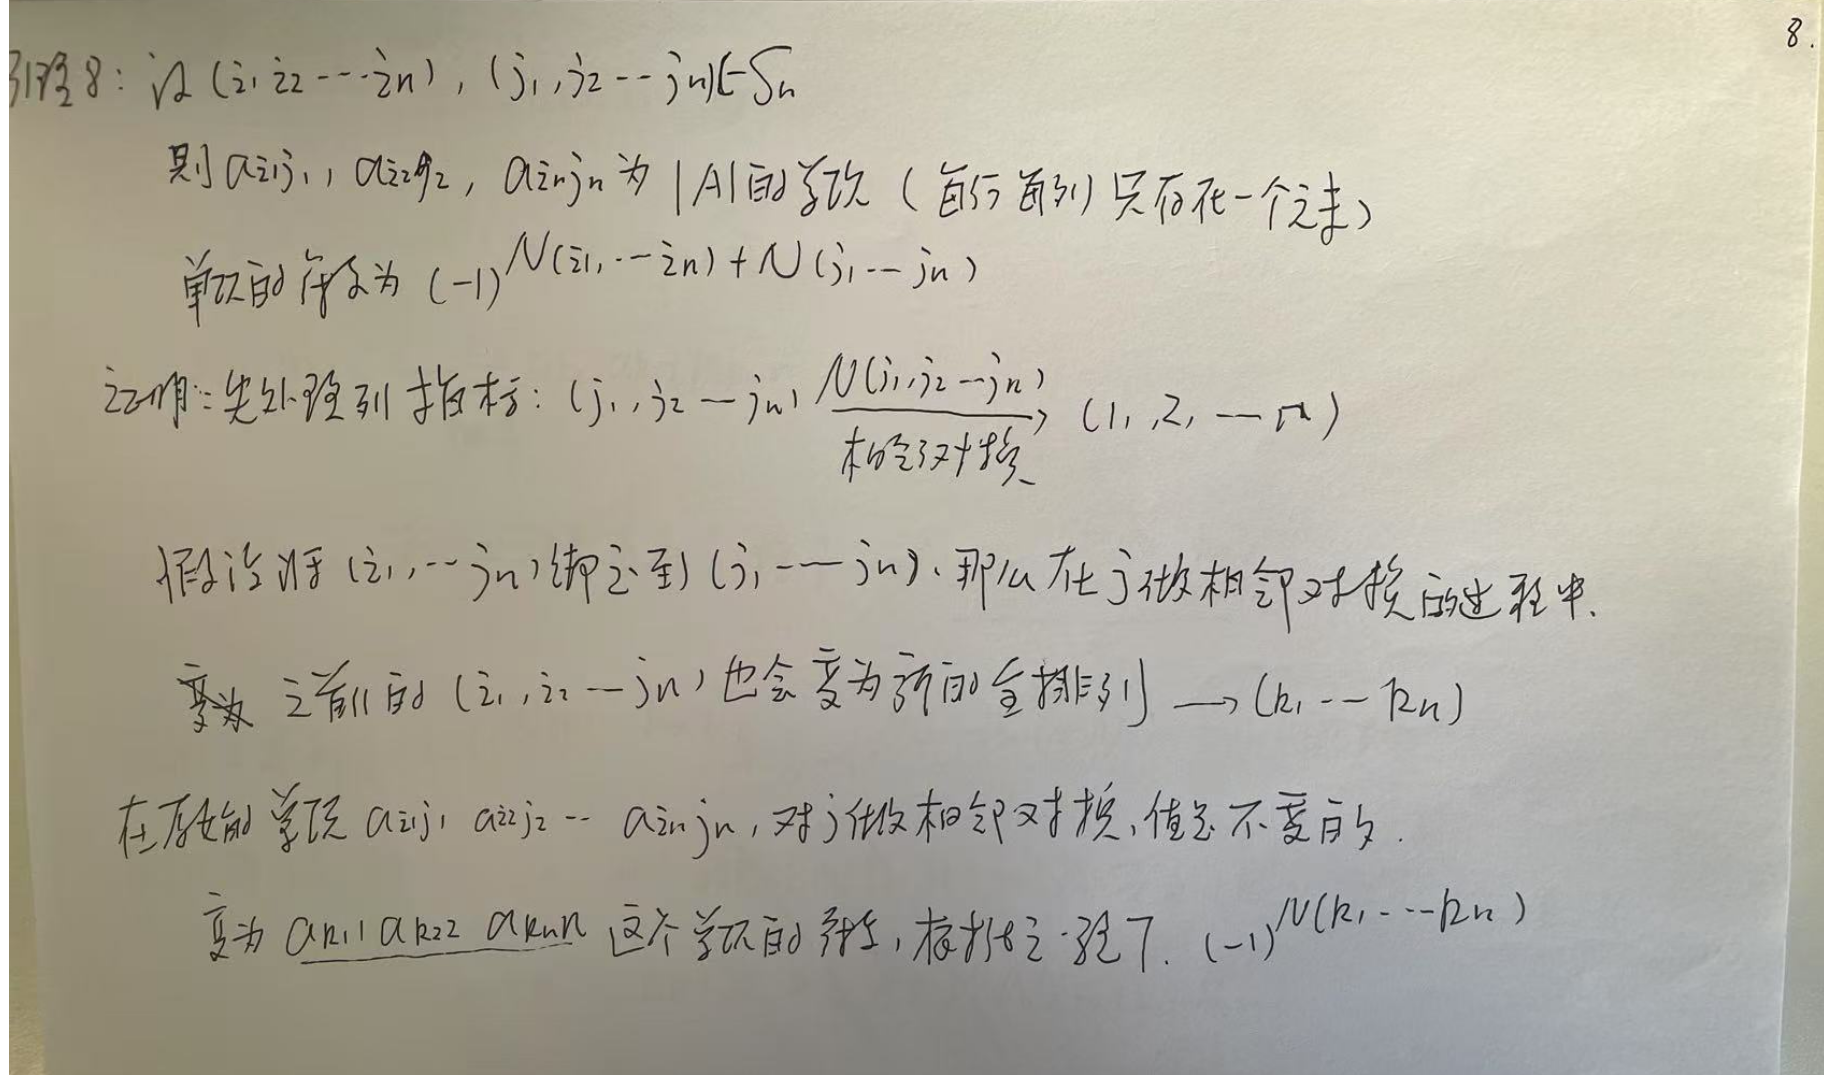 8.
引理8：设(i1 i2 ---in)，(j1, j2 -- jn)∈Sn
则 ai1j1, ai2j2, ainjn 为 |A| 的单项（每行每列只存在一个元素）
单项的符号为 (-1)^N(i1, --in) + N(j1 -- jn)
证明：先处理列指标：(j1, j2 — jn) N(j1, j2 —jn) (1, 2, — n)
相邻对换
假设将(i1, -- jn)绑定到(j1 -— jn)，那么在j做相邻对换的过程中.
变为 之前的(i1, i2 — jn)也会变为新的全排列 → (k1 -- kn)
在原始的单项 ai1j1 ai2j2 -- ainjn，对j做相邻对换，值是不变的.
变为 ak11 ak22 aknn 这个单项的符号，根据定理7. (-1)^N(k1, ---kn)